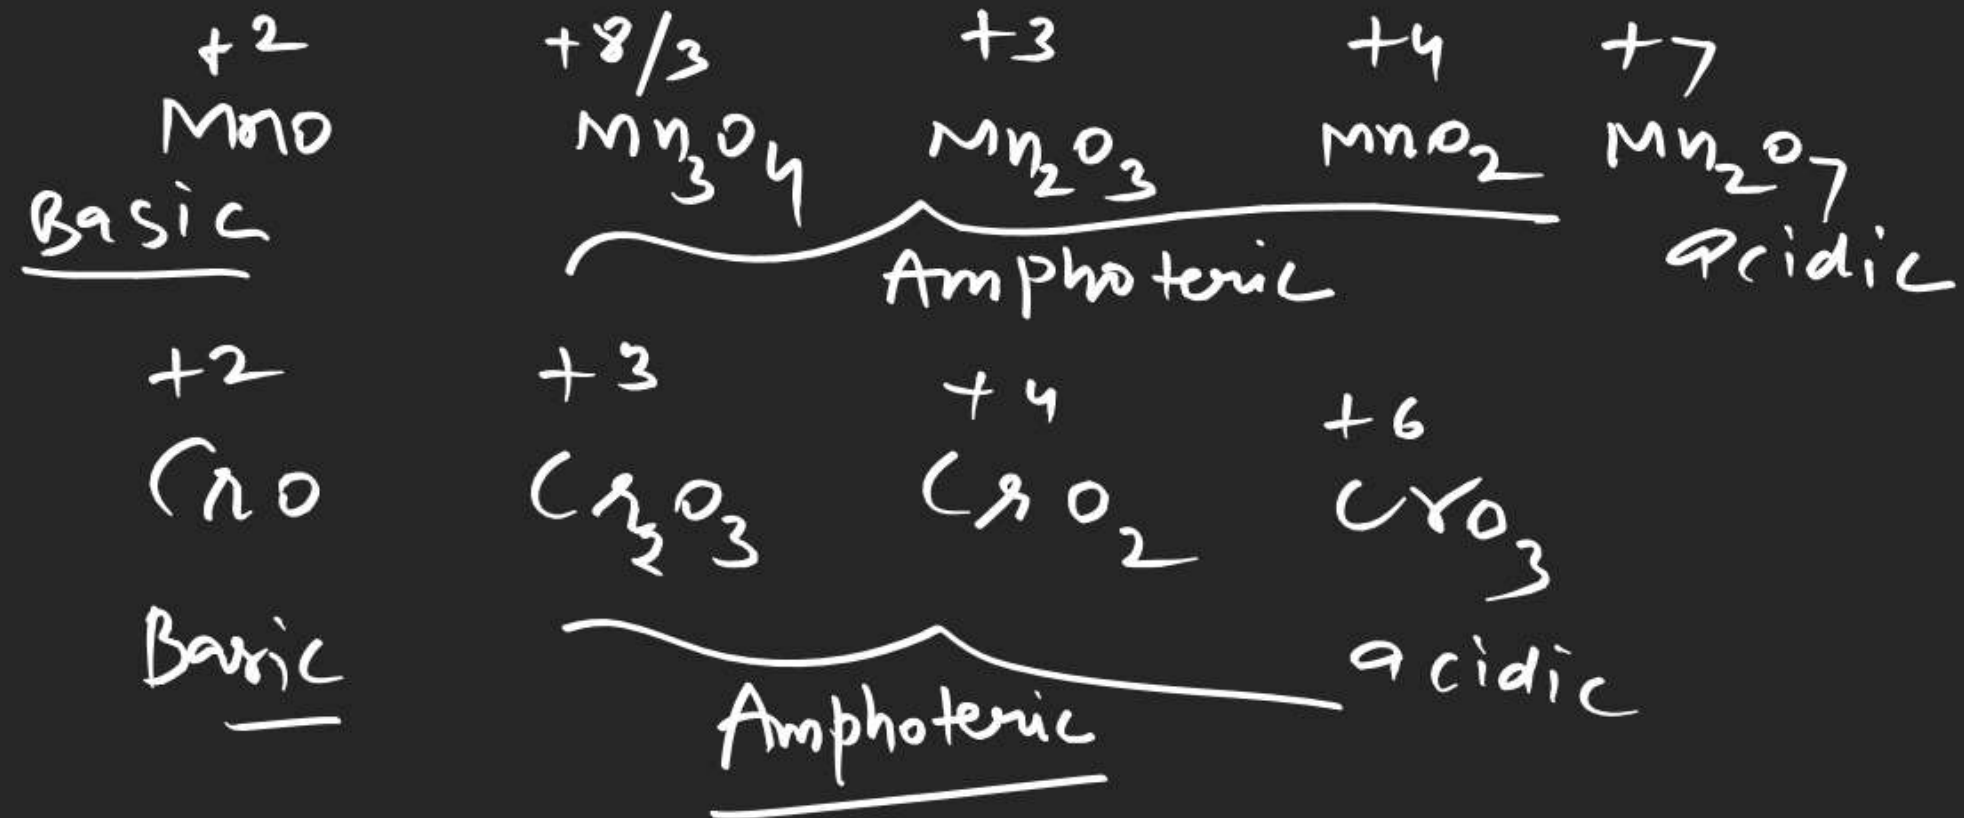 +2 +8/3 +3 +4 +7
MnO Mn3O4 Mn2O3 MnO2 Mn2O7
Basic Amphoteric acidic
+2 +3 +4 +6
CrO Cr2O3 CrO2 CrO3
Basic Amphoteric acidic